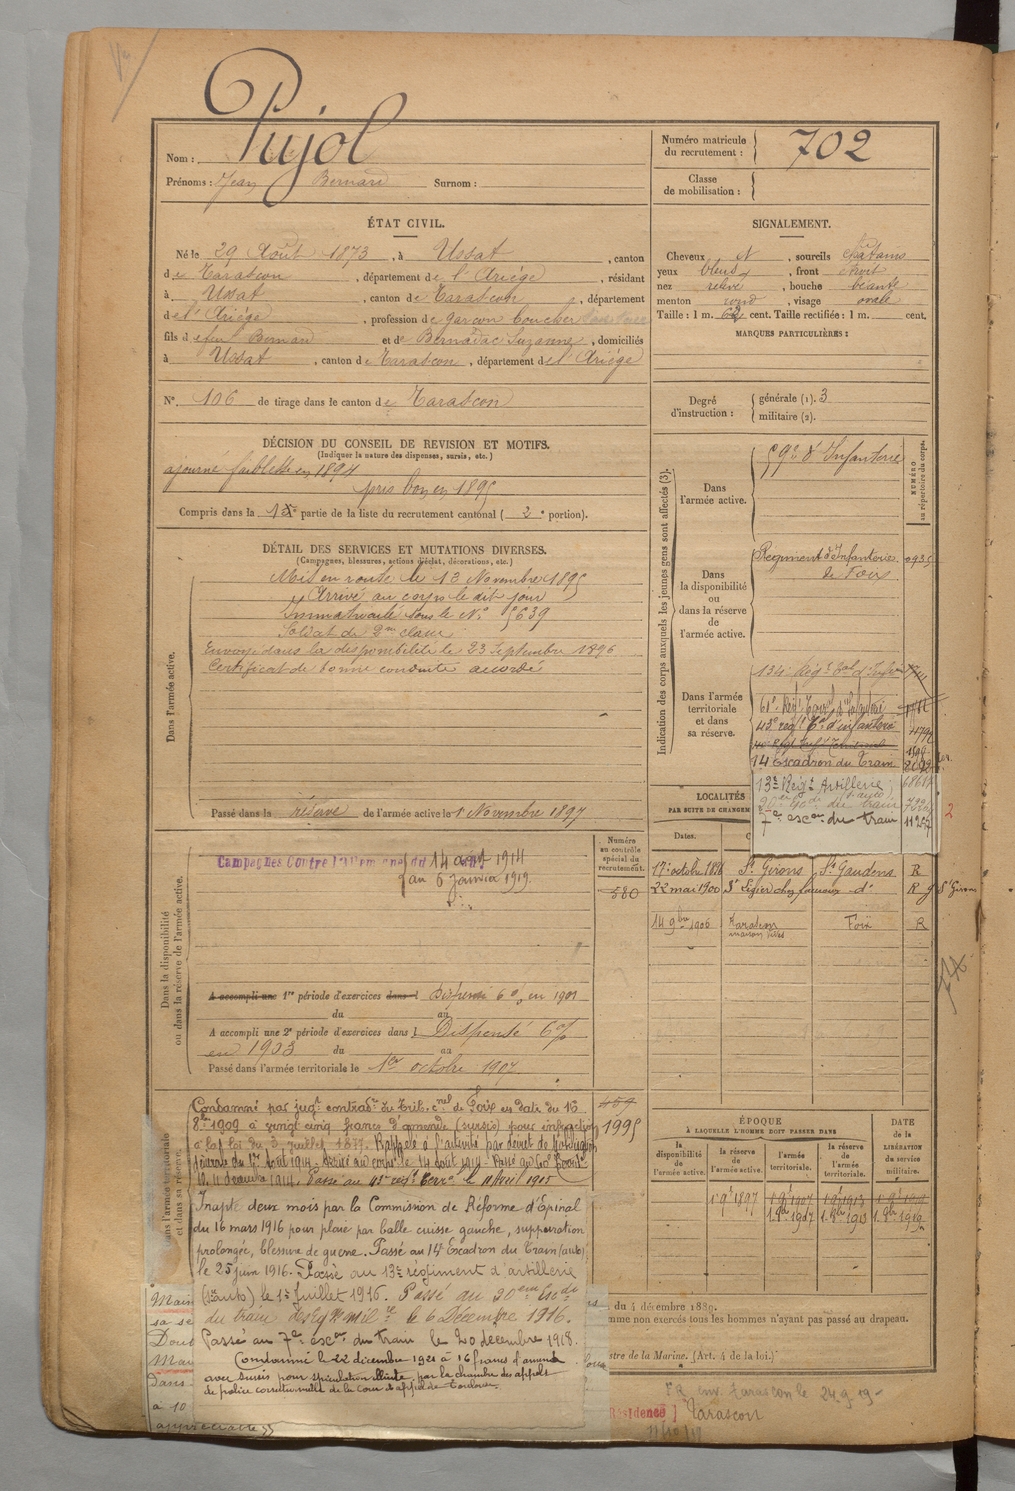 Pujol
Nom :
Prénoms : Jean Bernard Surnom :
Numéro matricule du recrutement : 702
Classe de mobilisation :
ÉTAT CIVIL.
Né le 29 Août 1873, à Ussat, canton
de Tarascon, département de l'Ariége, résidant
à Ussat, canton de Tarascon, département
de l'Ariége, profession de garçon boucher
fils de feu Bernard et de Bernadac Suzanne, domiciliés
à Ussat, canton de Tarascon, département de l'Ariége
N° 106 de tirage dans le canton de Tarascon
SIGNALEMENT.
Cheveux N, sourcils chatains
yeux bleus, front étroit
nez relevé, bouche béante
menton rond, visage ovale
Taille : 1 m. 62 cent. Taille rectifiée : 1 m. cent.
MARQUES PARTICULIÈRES :
Degré d'instruction : générale (1). 3
militaire (2).
DÉCISION DU CONSEIL DE REVISION ET MOTIFS.
(Indiquer la nature des dispenses, sursis, etc.)
ajourné faiblesse en 1894
pris bon en 1895
Compris dans la 1e partie de la liste du recrutement cantonal ( 2e portion).
DÉTAIL DES SERVICES ET MUTATIONS DIVERSES.
(Campagnes, blessures, actions d'éclat, décorations, etc.)
Dans l'armée active.
Mis en route le 13 Novembre 1895
Arrivé au corps le dit jour
Immatriculé sous le N° 5639
Soldat de 2me classe
Envoyé dans la disponibilité le 23 septembre 1896
Certificat de bonne conduite accordé
Passé dans la réserve de l'armée active le 1 Novembre 1897
Indication des corps auxquels les jeunes gens sont affectés (3).
NUMÉRO au répertoire du corps.
Dans l'armée active.
59e d'Infanterie
Dans la disponibilité ou dans la réserve de l'armée active.
Régiment d'Infanterie de Foix
Dans l'armée territoriale et dans sa réserve.
134e Régt
43e regt Tal d'infanterie
14 Escadron du Train
13e Regt Artillerie
7e escon du train
2
LOCALITÉS
PAR SUITE DE CHANGEM
Dates.
17 octobre 1896 St Girons St Gaudens R
22 mai 1900 d° R
14 9bre 1906 Tarascon Foix R
St Girons
Dans la disponibilité ou dans la réserve de l'armée active.
Numéro au contrôle spécial du recrutement.
580
Campagnes Contre l'Allemagne du 14 août 1914
au 6 janvier 1919.
A accompli une 1re période d'exercices dans l Dispensé en 1901
du au
A accompli une 2e période d'exercices dans l Dispensé
en 1903 du au
Passé dans l'armée territoriale le 1er octobre 1907
459
1995
Condamné par jugt contradre du Trib. cnel de Foix en date du 16
8bre 1909 à vingt cinq francs d'amende (sursis) pour infraction
à la loi du 3 juillet 1877. Rappelé à l'activité par décret de Mobilisation
générale du 1er Août 1914. Arrivé au corps le 14 août 1914. Passé au
le 11 décembre 1914. Passé au 43e regt Terr. le 11 Avril 1915
Inapte deux mois par la Commission de Réforme d'Epinal
du 16 mars 1916 pour plaie par balle cuisse gauche, suppuration
prolongée, blessure de guerre. Passé au 14e Escadron du Train (auto)
le 25 juin 1916. Passé au 13e régiment d'artillerie
(auto) le 1er Juillet 1916. Passé au 20eme Escon
du train des Eqp. Milre le 6 Décembre 1916.
Passé au 7e escon du train le 20 décembre 1918.
Condamné le 22 décembre 1921 à 16 francs d'amende
avec sursis pour spéculation illicite par la chambre des appels
de police correctionnelle de la cour d'appel de Toulouse
ÉPOQUE
À LAQUELLE L'HOMME DOIT PASSER DANS
la disponibilité de l'armée active.
la réserve de l'armée active.
l'armée territoriale.
la réserve de l'armée territoriale.
DATE de la LIBÉRATION du service militaire.
1 9bre 1897
du 4 décembre 1889.
mme non exercés tous les hommes n'ayant pas passé au drapeau.
stre de la Marine. (Art. 4 de la loi.)
Tarascon le 24 9 19
Résidence] Tarascon